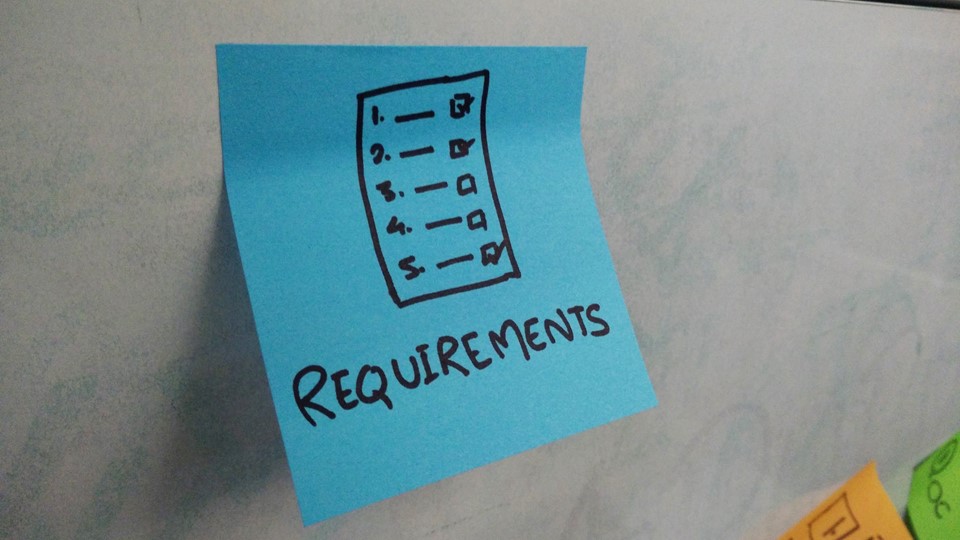 1.
2.
3.
4.
5.
REQUIREMENTS